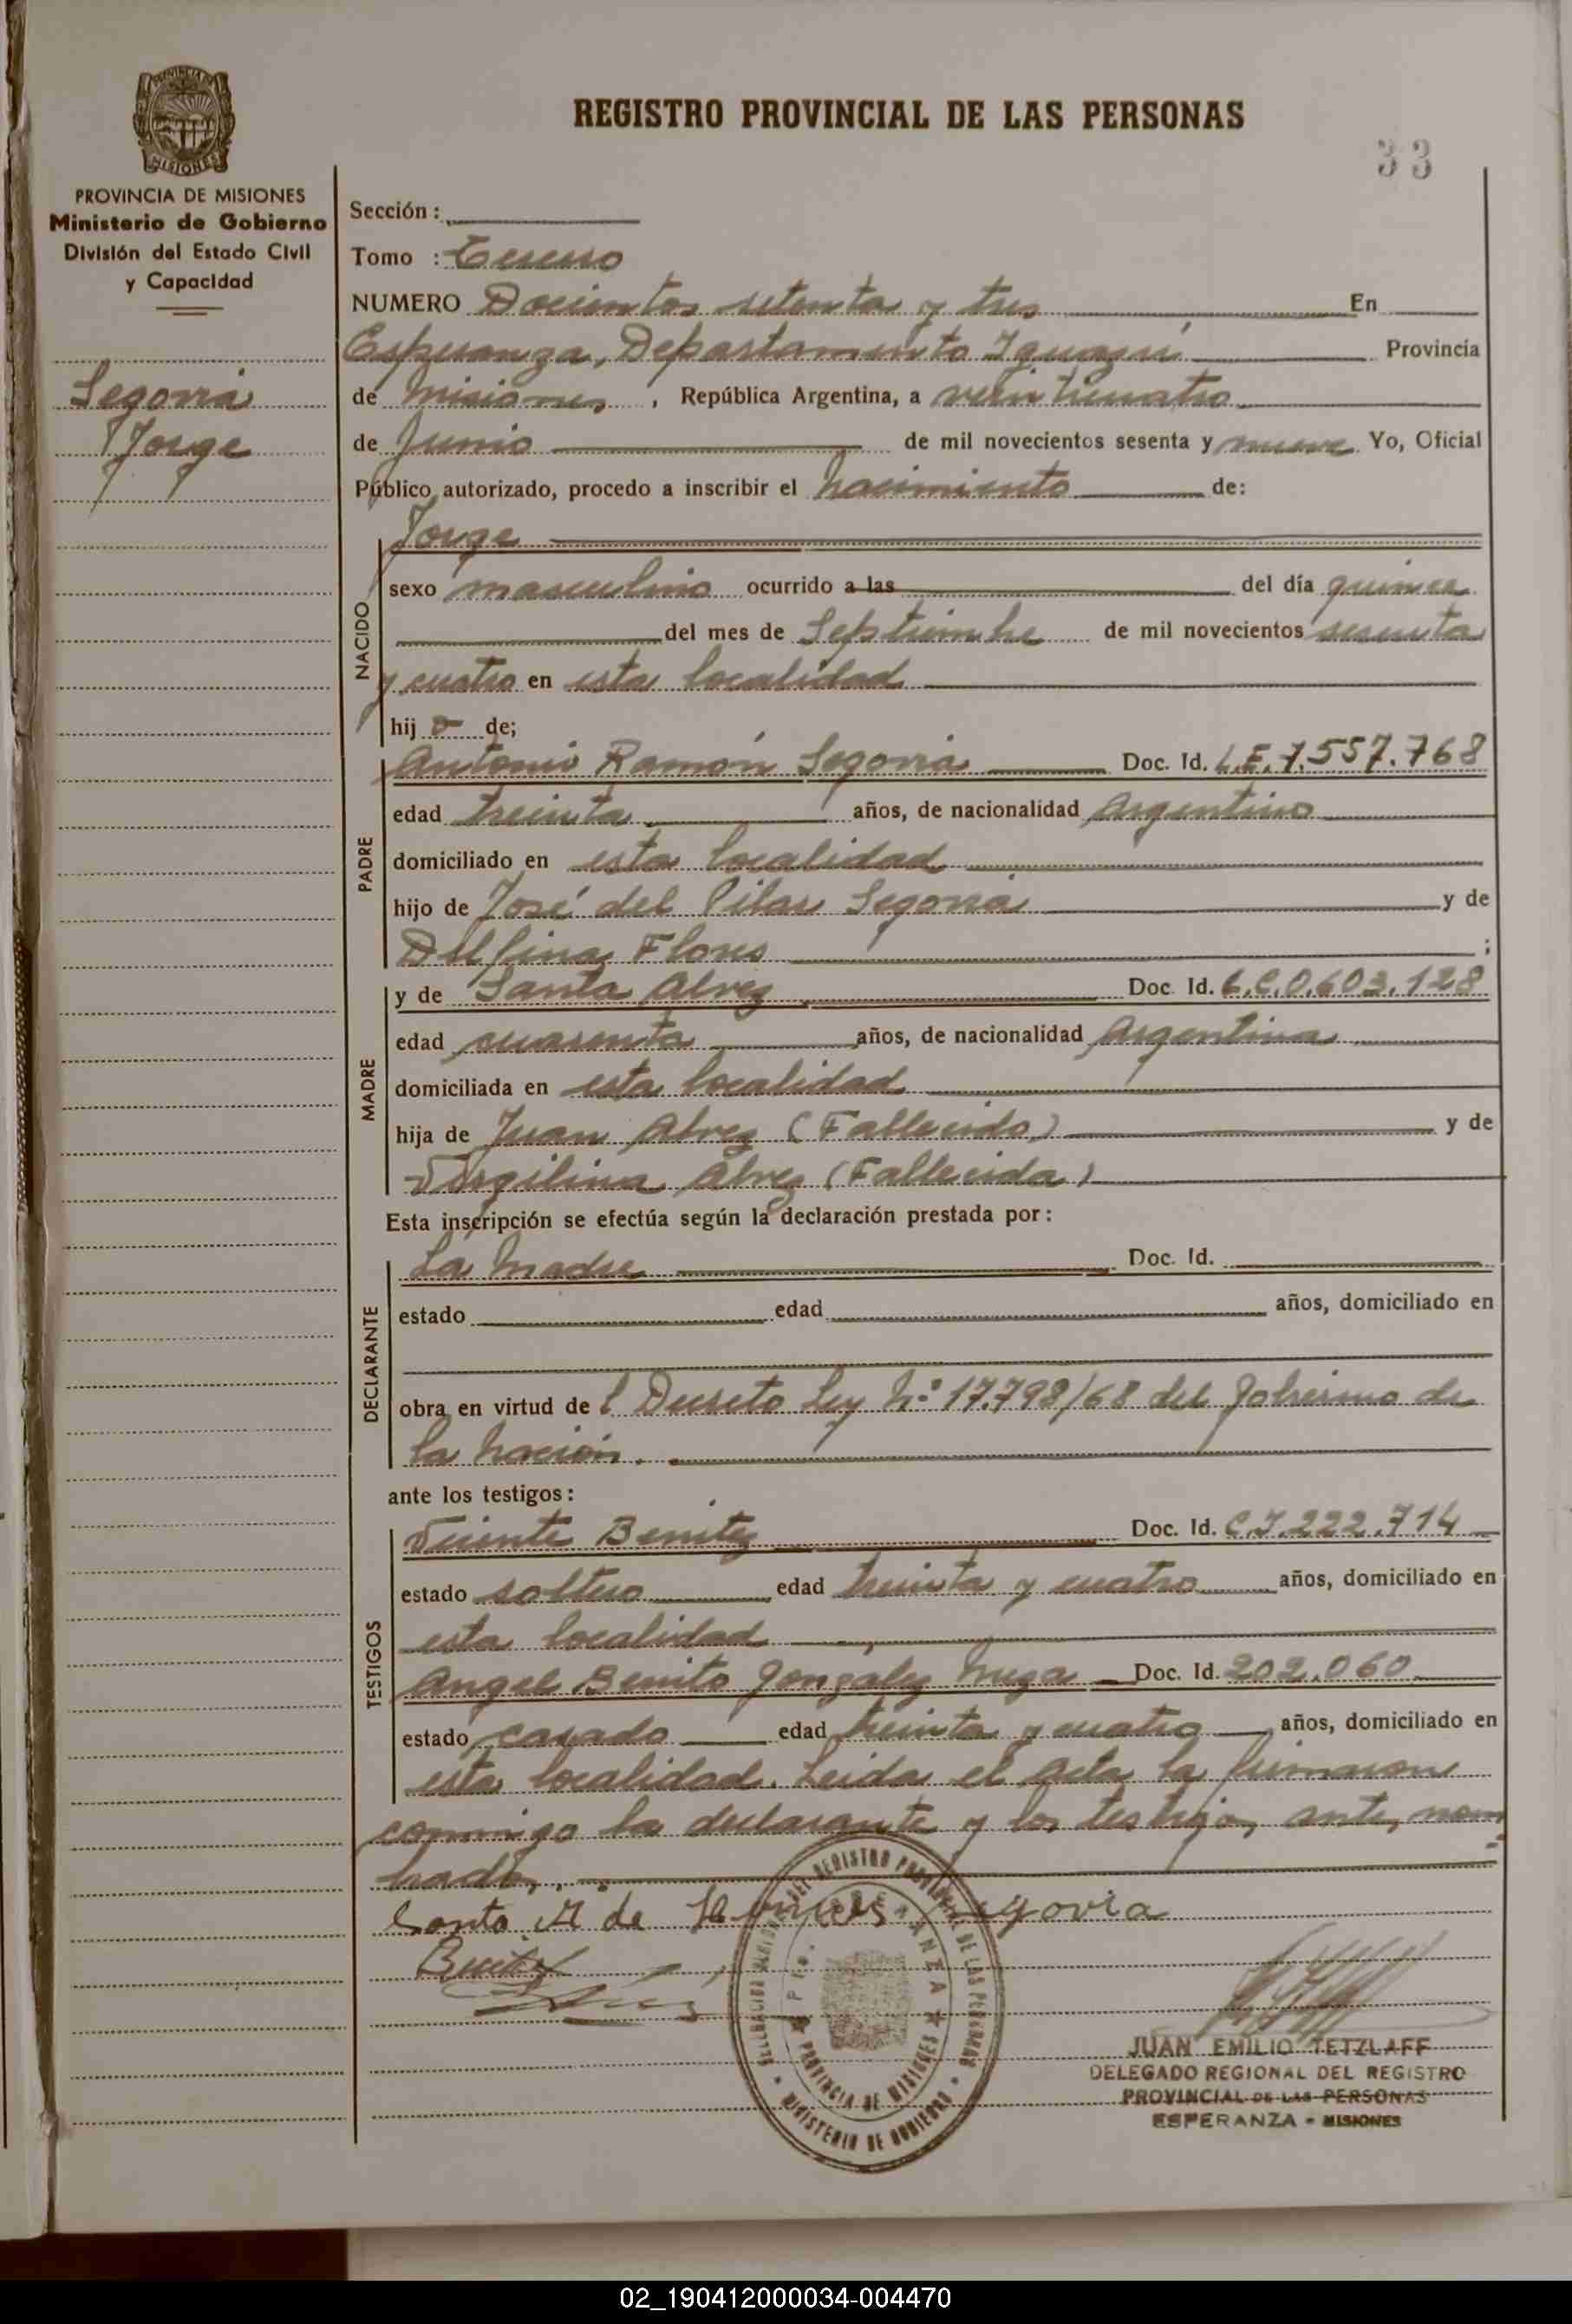 REGISTRO PROVINCIAL DE LAS PERSONAS
33
PROVINCIA DE MISIONES
MISIONES
PROVINCIA DE MISIONES
Ministerio de Gobierno
División del Estado Civil
y Capacidad
Segovia
Jorge
Sección:
Tomo : Tercero
NUMERO Docientos setenta y tres En
Esperanza, Departamento Iguazú Provincia
de Misiones, República Argentina, a veinticuatro
de Junio de mil novecientos sesenta y nueve Yo, Oficial
Público autorizado, procedo a inscribir el nacimiento de:
NACIDO
Jorge
sexo masculino ocurrido a las del día quince
del mes de Septiembre de mil novecientos sesenta
y cuatro en esta localidad
hij o de;
PADRE
Antonio Ramón Segovia Doc. Id. L.E. 7.557.768
edad treinta años, de nacionalidad Argentino
domiciliado en esta localidad
hijo de José del Pilar Segovia y de
Delfina Flores ;
MADRE
y de Santa Alvez Doc. Id. L.C.0.603.128
edad cuarenta años, de nacionalidad Argentina
domiciliada en esta localidad
hija de Juan Alvez (Fallecido) y de
Virgilina Alvez (Fallecida)
Esta inscripción se efectúa según la declaración prestada por:
DECLARANTE
La Madre Doc. Id.
estado edad años, domiciliado en
obra en virtud de l Decreto Ley Nº 17.798/68 del Gobierno de
la Nación.
ante los testigos:
TESTIGOS
Vicente Benitez Doc. Id. C.I. 222.714
estado soltero edad treinta y cuatro años, domiciliado en
esta localidad
Angel Benito González Meza Doc. Id. 202.060
estado casado edad treinta y cuatro años, domiciliado en
esta localidad. Leida el acta la firmaron
conmigo la declarante y los testigos antes nom
brados.
Santa A de Segovia
Benitez
PROVINCIA DE MISIONES
MINISTERIO DE GOBIERNO
JUAN EMILIO TETZLAFF
DELEGADO REGIONAL DEL REGISTRO
PROVINCIAL DE LAS PERSONAS
ESPERANZA - MISIONES
02_190412000034-004470